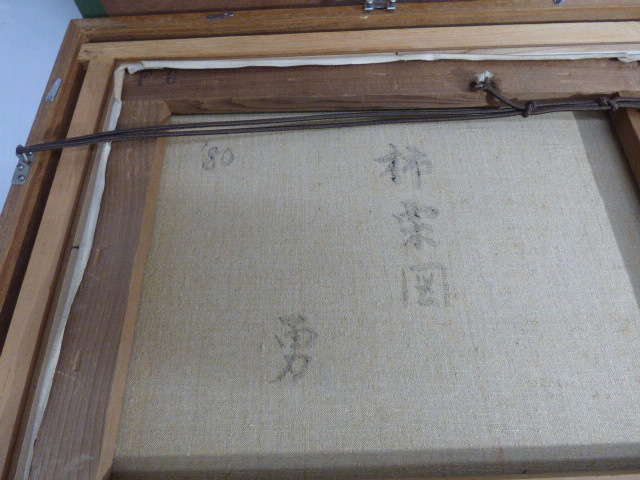 柿栗図
勇
'80